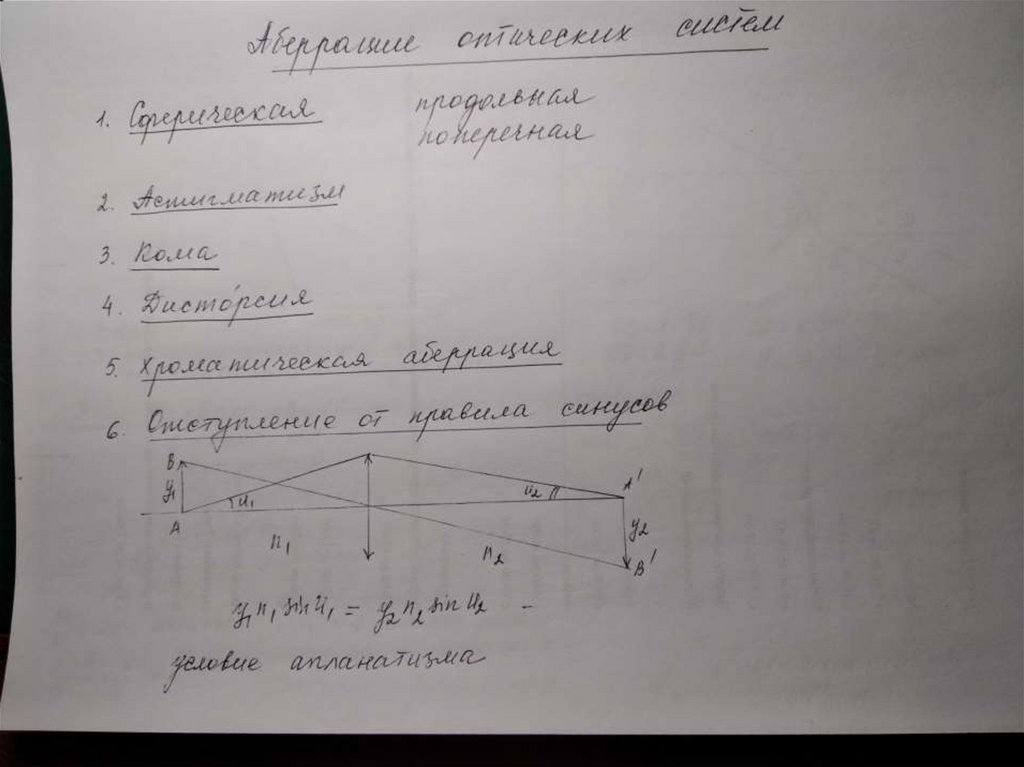 Аберрации оптических систем
1. Сферическая продольная
поперечная
2. Астигматизм
3. Кома
4. Дисто́рсия
5. Хроматическая аберрация
6. Отступление от правила синусов
B
y₁
A
u₁
n₁
u₂
n₂
A'
y₂
B'
y₁n₁ sin u₁ = y₂ n₂ sin u₂ –
условие апланатизма